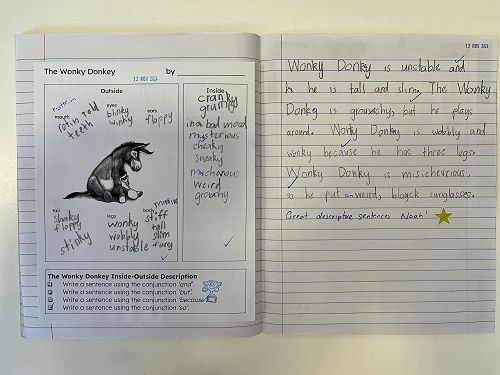 12 NOV 2025
The Wonky Donkey by
Outside
Inside
mouth
rotin rold
teeth
eyes
blinky
winky
ears
floppy
cranky
grumpy
in a bad mood
mysterious
cheaky
sneaky
mischorous
weird
grouchy
tail
shaky
floppy
stinky
legs
wonky
wobbly
unstable
body
stiff
tall
slim
fury
The Wonky Donkey Inside-Outside Description
Write a sentence using the conjunction 'and'.
Write a sentence using the conjunction 'but'.
Write a sentence using the conjunction 'because'.
Write a sentence using the conjunction 'so'.
12 NOV 2025
Wonky Donkey is unstable and
he is tall and slim. The Wonky
Donkey is grouchy, but he plays
around. Wonky Donkey is wobbly and
wonky because he has three legs.
Wonky Donkey is mischevious,
so he put on weird, blayck sunglasses.
Great descriptive sentences Noah!